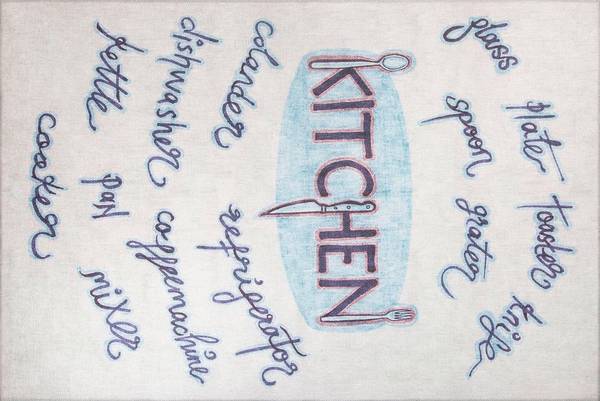 glass plate toaster knife
spoon grater
KITCHEN
colander refrigerator
dishwasher coffeemachine
kettle pan mixer
cooker